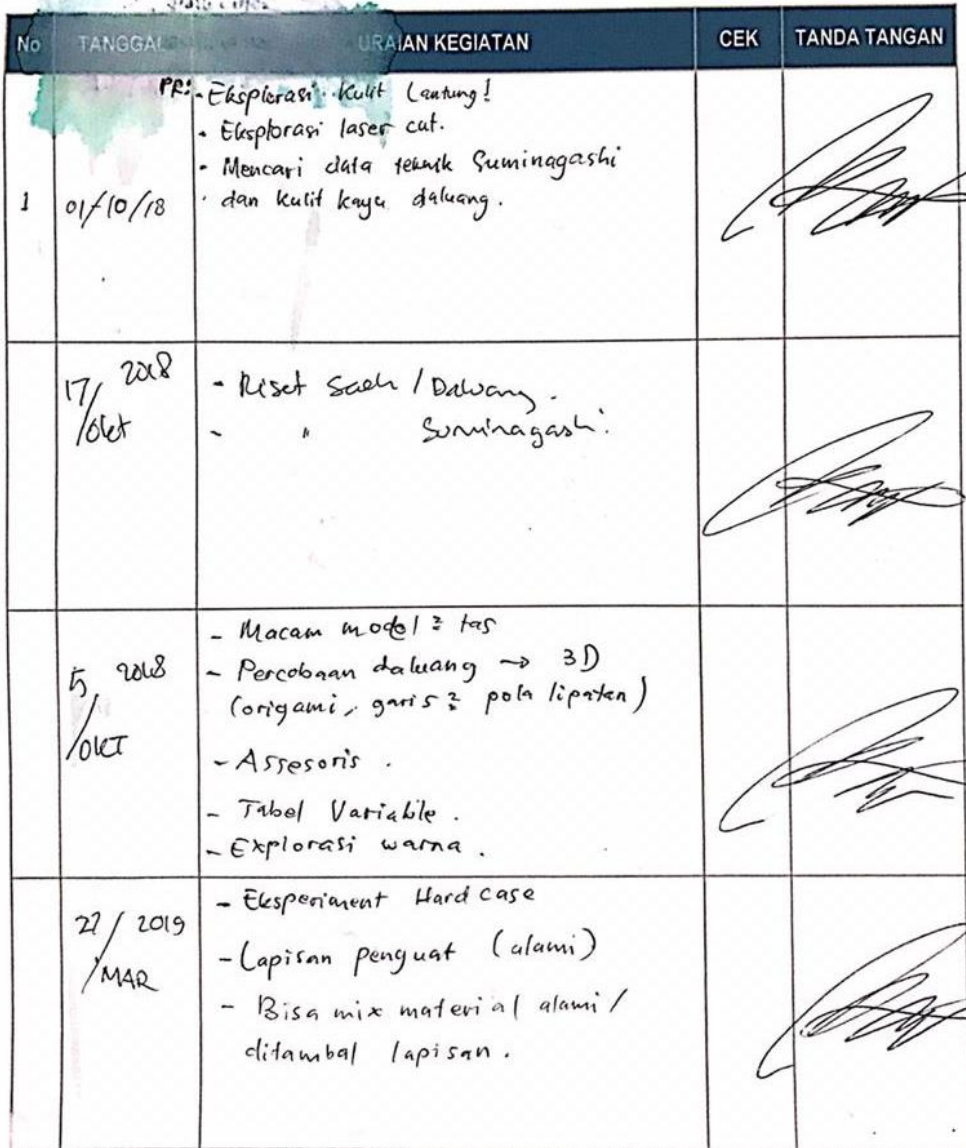 No TANGGAL URAIAN KEGIATAN CEK TANDA TANGAN
1 01/10/18
PR: - Eksplorasi Kulit Lantung!
- Eksplorasi laser cut.
- Mencari data teknik Suminagashi
dan kulit kayu daluang.
17/ 2018
/Okt
- Riset Saeh / Daluang.
- " Suminagashi.
5 2018
/OKT
- Macam model² tas
- Percobaan daluang → 3D
(origami, garis² pola lipatan)
- Assesoris .
- Tabel Variable .
- Explorasi warna .
/ 2019
/MAR
- Eksperiment Hard case
- Lapisan penguat (alami)
- Bisa mix material alami /
ditambal lapisan .